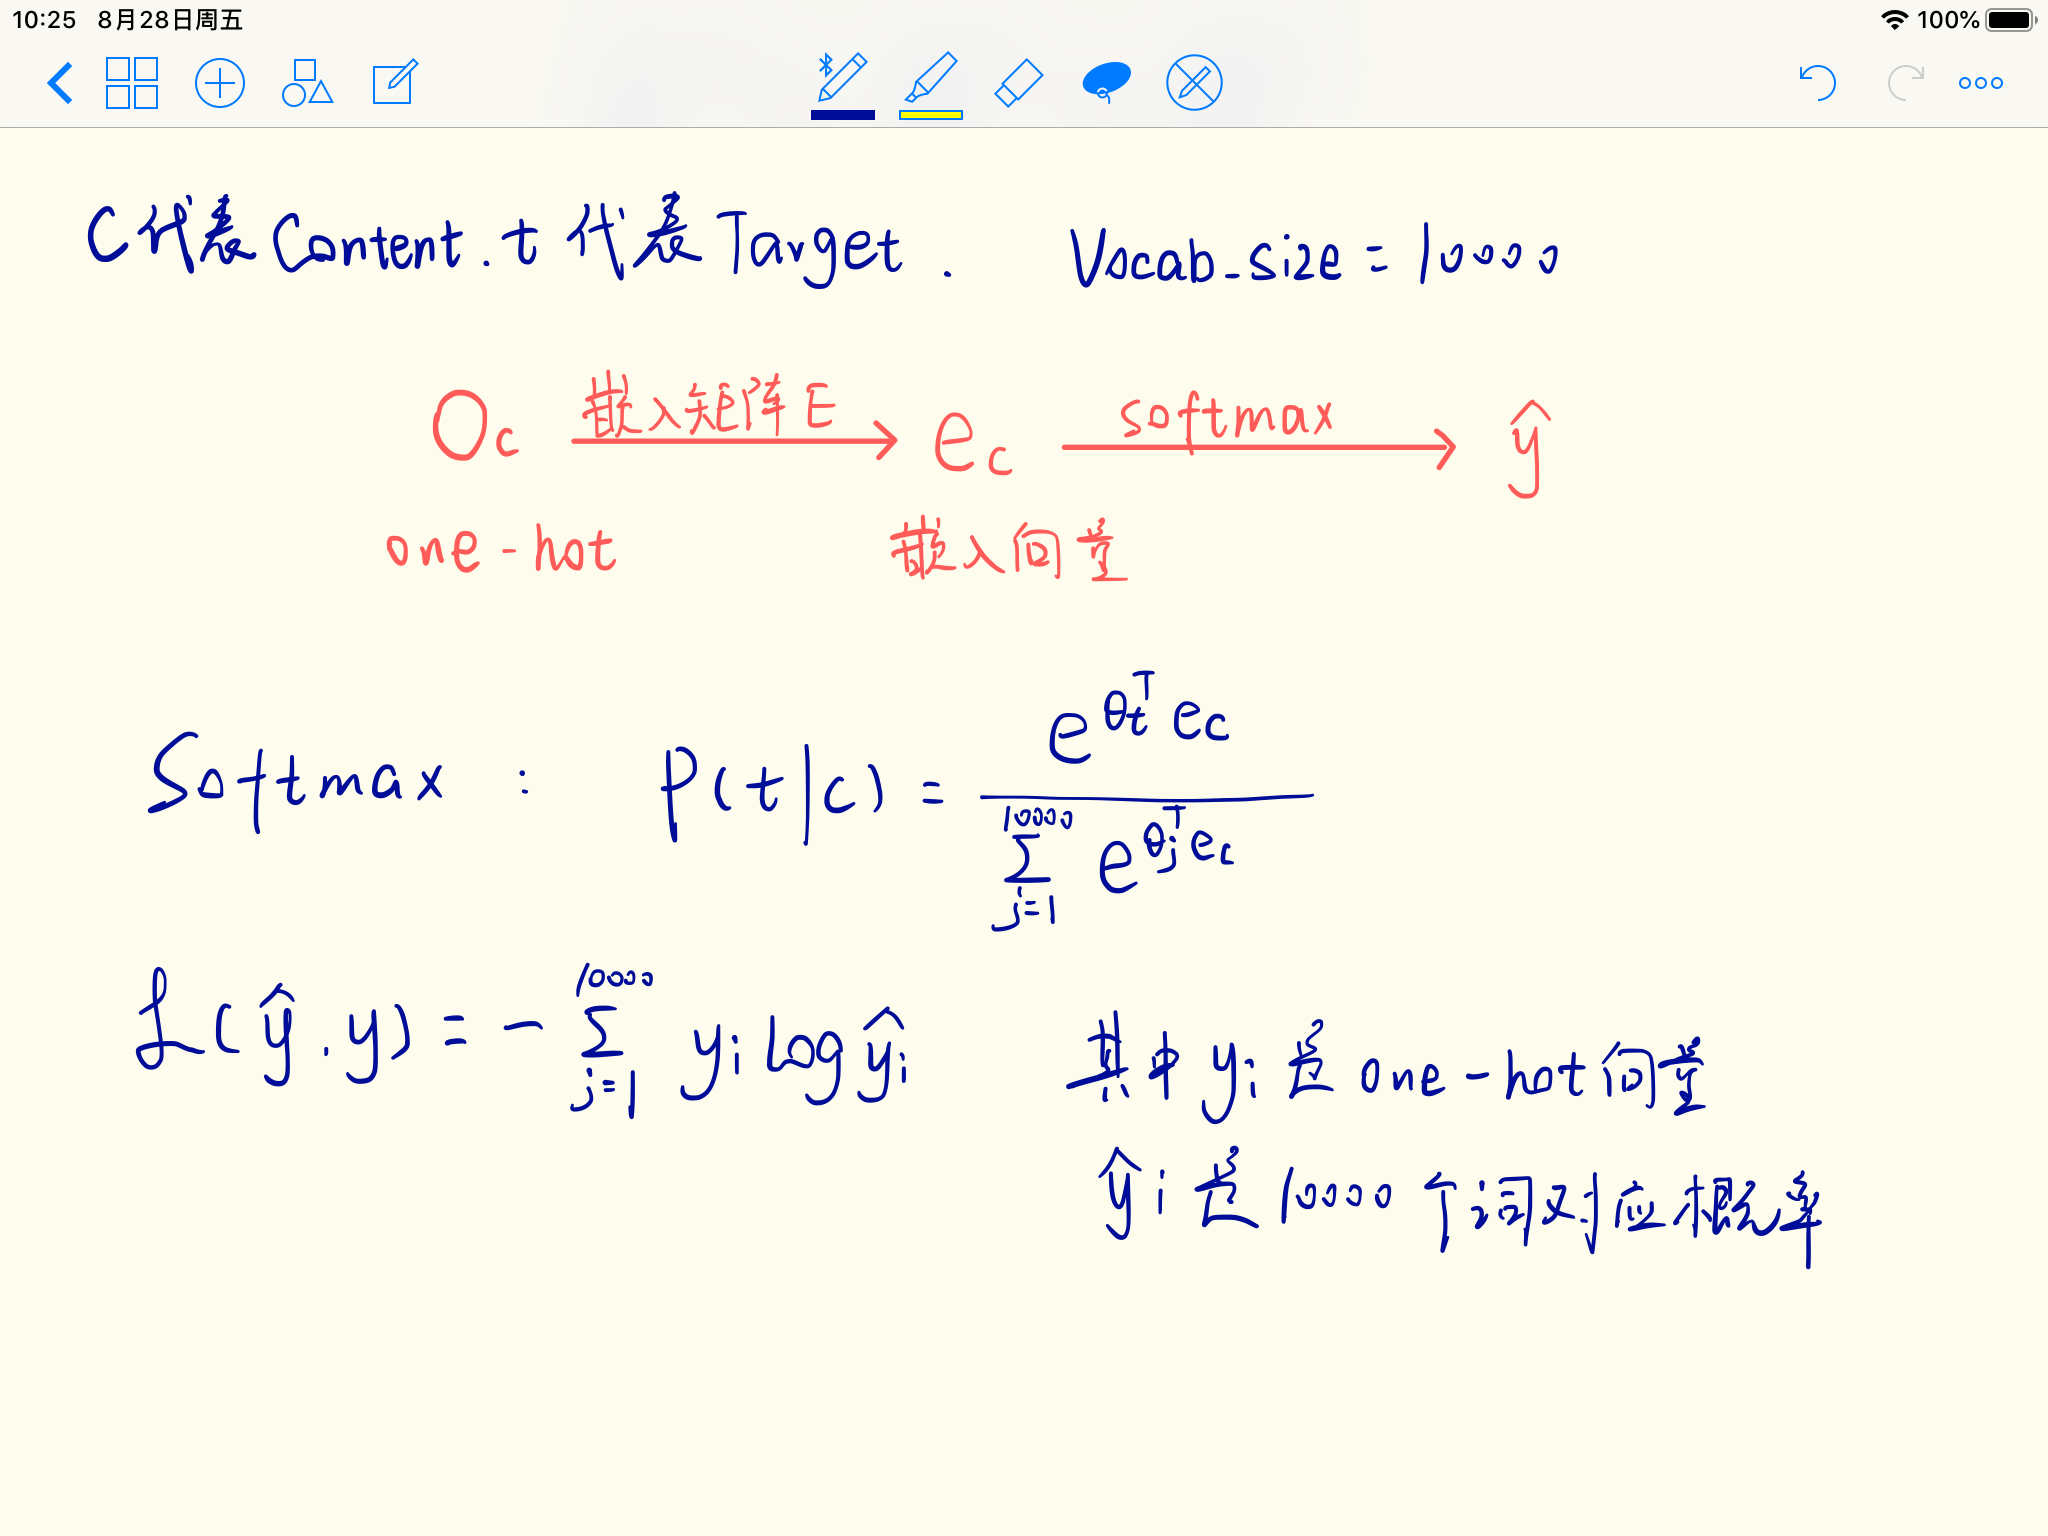 10:25 8月28日周五 100%
C代表Content.t代表Target. Vocab_size=10000
Oc 嵌入矩阵E ec softmax ŷ
one-hot 嵌入向量
Softmax : P(t|c) = e^{θ_t^T e_c} / Σ_{j=1}^{10000} e^{θ_j^T e_c}
ℒ(ŷ.y) = - Σ_{j=1}^{10000} y_i log ŷ_i 其中 y_i 是 one-hot 向量
ŷ_i 是 10000 个词对应概率